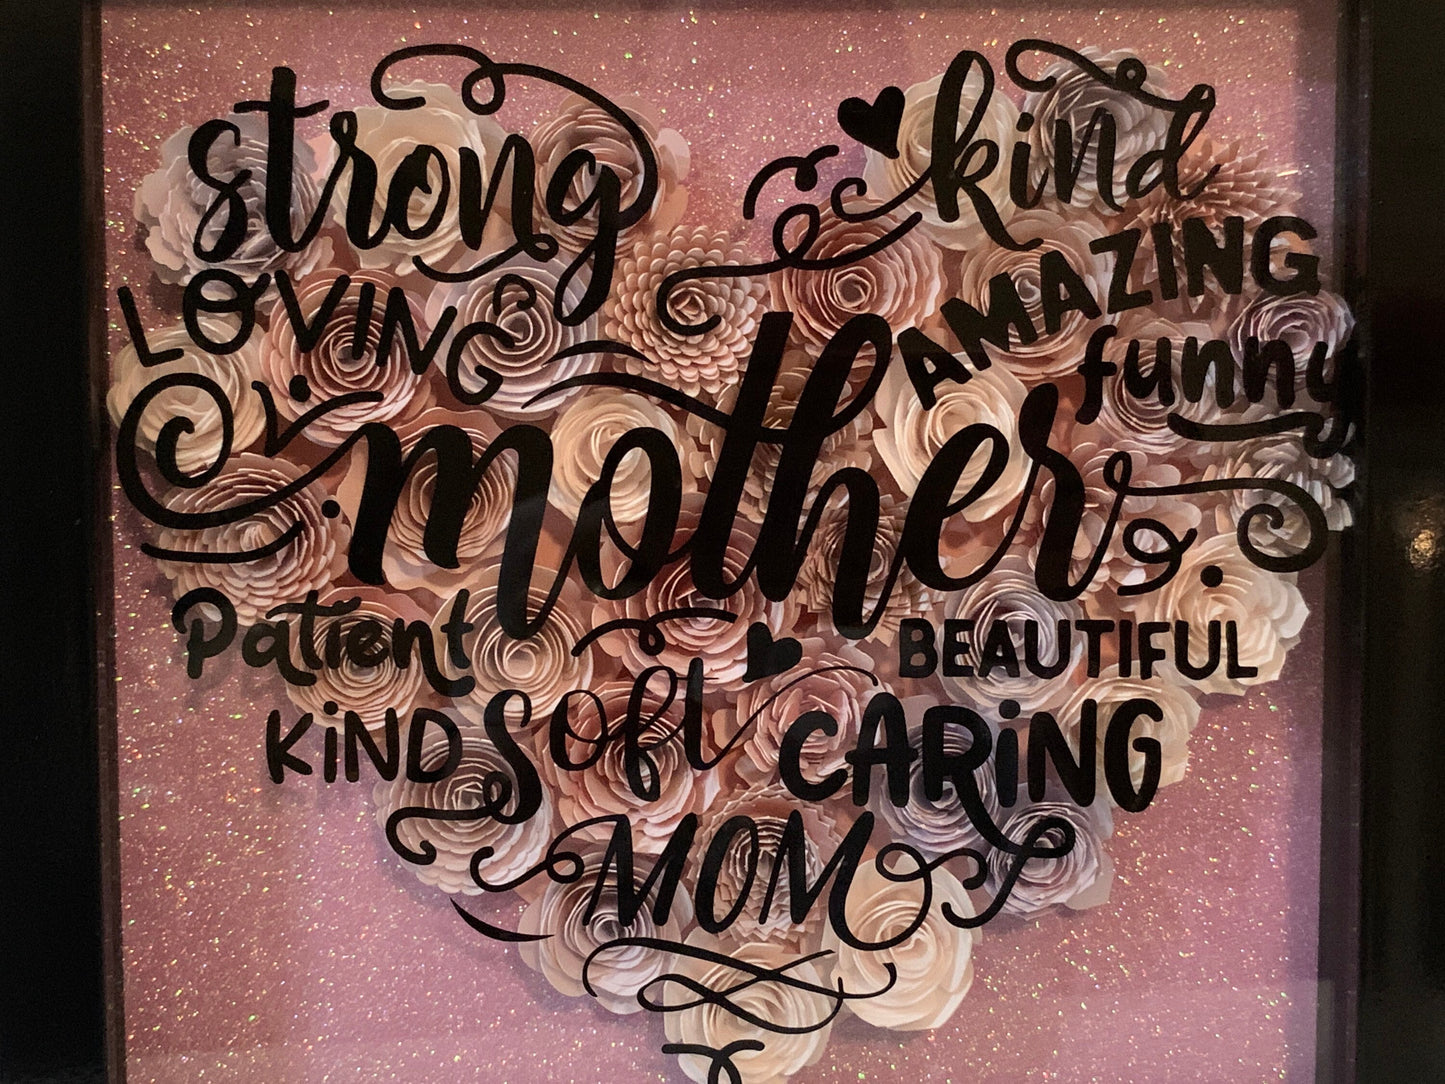 strong kind
LOVING AMAZING
funny
mother
Patient BEAUTIFUL
KiND Soft CARiNG
MOM